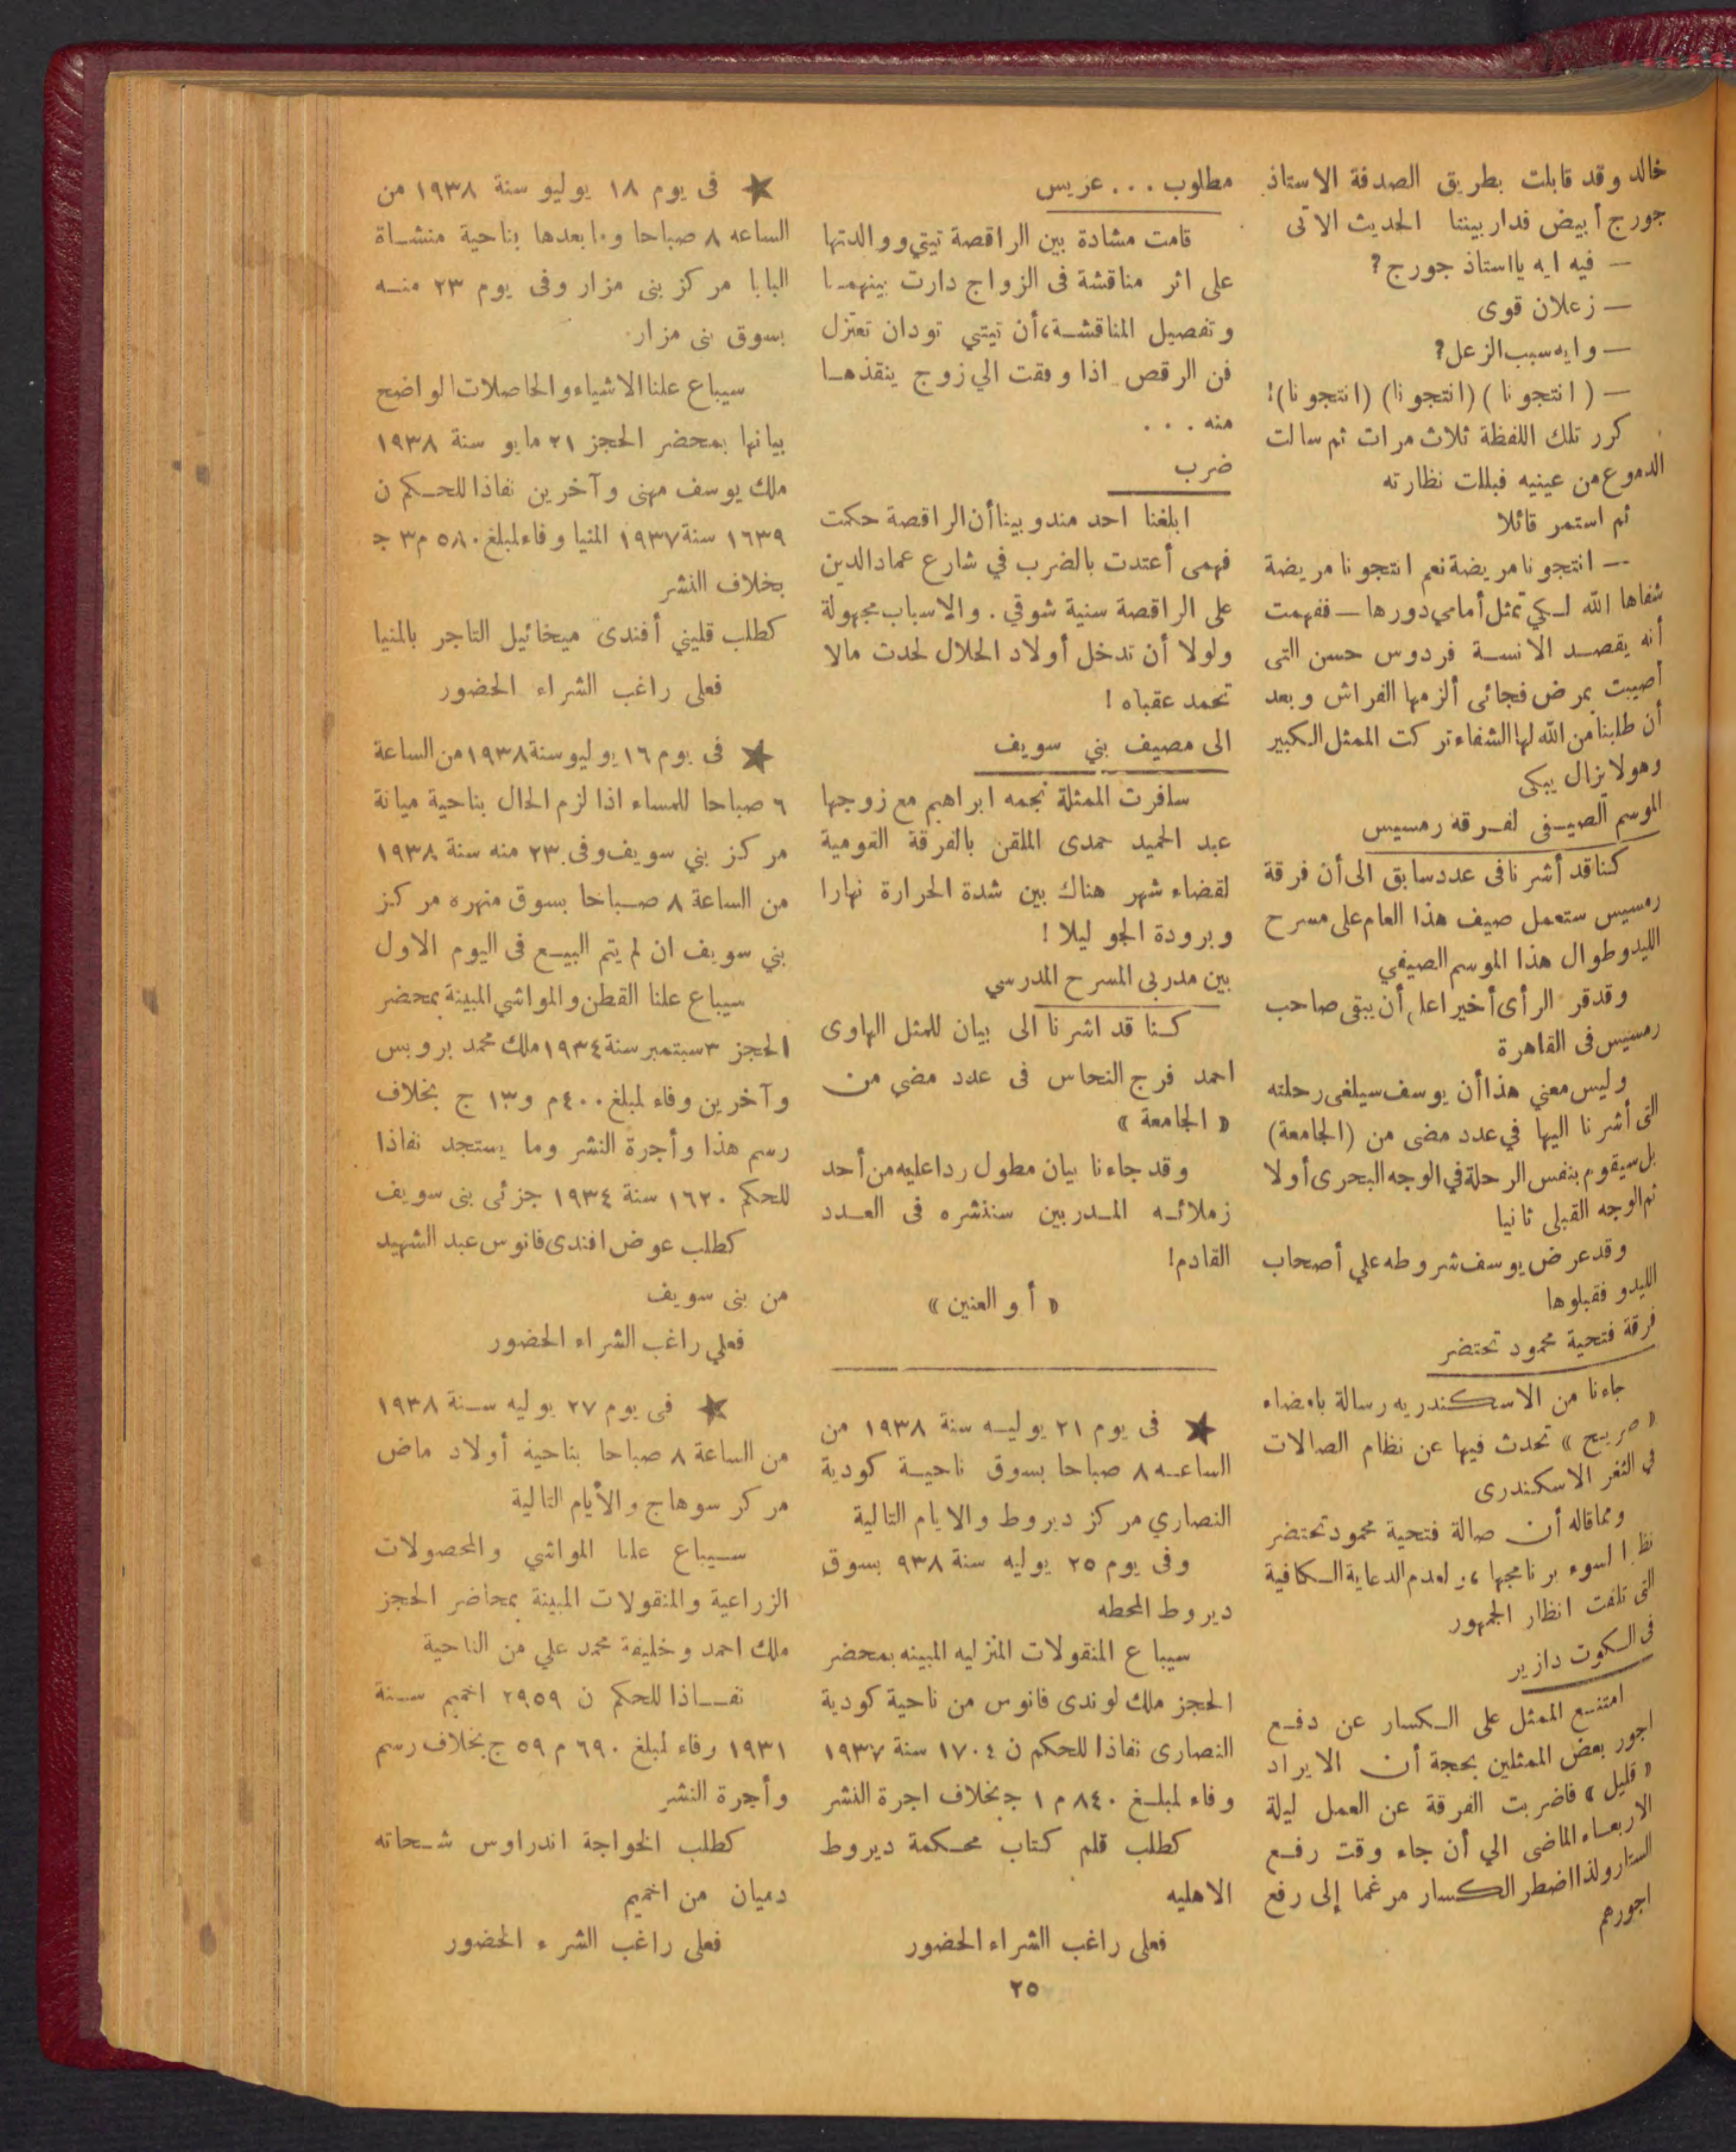 خالد وقد قابلت بطريق الصدفة الاستاذ
جورج أبيض فدار بيننا الحديث الاتى
— فيه ايه يااستاذ جورج ?
— زعلان قوى
— وايه سبب الزعل ?
— ( انتجونا ) (انتجونا) (انتجونا) !
كرر تلك اللفظة ثلاث مرات ثم سالت
الدموع من عينيه فبللت نظارته
ثم استمر قائلا
— انتجونا مريضة نعم انتجونا مريضة
شفاها الله لكي تمثل أمامي دورها — ففهمت
أنه يقصد الانسة فردوس حسن التى
أصيبت بمرض فجائى ألزمها الفراش وبعد
أن طلبنا من الله لها الشفاء تركت الممثل الكبير
وهولا يزال يبكى
الموسم الصيفى لفرقة رمسيس
كنا قد أشرنا فى عدد سابق الى أن فرقة
رمسيس ستعمل صيف هذا العام على مسرح
الليدو طوال هذا الموسم الصيفي
وقد قر الرأى أخيرا على أن يبقى صاحب
رمسيس فى القاهرة
وليس معني هذا أن يوسف سيلغى رحلته
التى أشرنا اليها في عدد مضى من (الجامعة)
بل سيقوم بنفس الرحلة في الوجه البحرى أولا
ثم الوجه القبلى ثانيا
وقد عرض يوسف شروطه علي أصحاب
الليدو فقبلوها
فرقة فتحية محمود تحتضر
جاءنا من الاسكندريه رسالة بامضاء
« صريح » تحدث فيها عن نظام الصالات
في الثغر الاسكندرى
ومما قاله أن صالة فتحية محمود تحتضر
نظرا لسوء برنامجها ، ولعدم الدعاية الكافية
التى تلفت انظار الجمهور
فى الكوت دازير
امتنع الممثل على الكسار عن دفع
اجور بعض الممثلين بحجة أن الايراد
« قليل » فاضربت الفرقة عن العمل ليلة
الاربعاء الماضى الي أن جاء وقت رفع
الستار ولذا اضطر الكسار مرغما إلى رفع
اجورهم
مطلوب . . . عريس
قامت مشادة بين الراقصة تيتي ووالدتها
على اثر مناقشة فى الزواج دارت بينهما
وتفصيل المناقشة، أن تيتي تودان تعتزل
فن الرقص اذا وفقت الي زوج ينقذها
منه . . .
ضرب
ابلغنا احد مندوبينا أن الراقصة حكمت
فهمى أعتدت بالضرب في شارع عماد الدين
على الراقصة سنية شوقي . والاسباب مجهولة
ولولا أن تدخل أولاد الحلال لحدث مالا
تحمد عقباه !
الى مصيف بني سويف
سافرت الممثلة نجمه ابراهيم مع زوجها
عبد الحميد حمدى الملقن بالفرقة القومية
لقضاء شهر هناك بين شدة الحرارة نهارا
وبرودة الجو ليلا !
بين مدربى المسرح المدرسي
كنا قد اشرنا الى بيان للمثل الهاوى
احمد فرج النحاس فى عدد مضي من
« الجامعة »
وقد جاءنا بيان مطول ردا عليه من أحد
زملائه المدربين سننشره فى العدد
القادم !
« أو العنين »
★ فى يوم ٢١ يوليه سنة ١٩٣٨ من
الساعه ٨ صباحا بسوق ناحية كودية
النصاري مركز ديروط والايام التالية
وفى يوم ٢٥ يوليه سنة ٩٣٨ بسوق
ديروط المحطه
سيباع المنقولات المنزليه المبينه بمحضر
الحجز ملك لوندى فانوس من ناحية كودية
النصارى نفاذا للحكم ن ١٧٠٤ سنة ١٩٣٧
وفاء لمبلغ ٨٤٠ م ١ ج بخلاف اجرة النشر
كطلب قلم كتاب محكمة ديروط
الاهليه
فعلى راغب الشراء الحضور
★ فى يوم ١٨ يوليو سنة ١٩٣٨ من
الساعه ٨ صباحا وما بعدها بناحية منشاة
البابا مركز بنى مزار وفى يوم ٢٣ منه
بسوق بنى مزار
سيباع علنا الاشياء والحاصلات الواضح
بيانها بمحضر الحجز ٢١ مايو سنة ١٩٣٨
ملك يوسف مهنى وآخرين نفاذا للحكم ن
١٦٣٩ سنة ١٩٣٧ المنيا وفاء لمبلغ ٥٨٠ م ٣ ج
بخلاف النشر
كطلب قليني أفندى ميخائيل التاجر بالمنيا
فعلى راغب الشراء الحضور
★ فى يوم ١٦ يوليو سنة ١٩٣٨ من الساعة
٦ صباحا للمساء اذا لزم الحال بناحية ميانة
مركز بني سويف وفى ٢٣ منه سنة ١٩٣٨
من الساعة ٨ صباحا بسوق منهره مركز
بني سويف ان لم يتم البيع فى اليوم الاول
سيباع علنا القطن والمواشي المبينة بمحضر
الحجز ٣ سبتمبر سنة ١٩٣٤ ملك محمد بروبس
وآخرين وفاء لمبلغ ٤٠٠ م و١٣ ج بخلاف
رسم هذا وأجرة النشر وما يستجد نفاذا
للحكم ١٦٢٠ سنة ١٩٣٤ جزئى بنى سويف
كطلب عوض افندى فانوس عبد الشهيد
من بنى سويف
فعلي راغب الشراء الحضور
★ فى يوم ٢٧ يوليه سنة ١٩٣٨
من الساعة ٨ صباحا بناحية أولاد ماض
مركر سوهاج والأيام التالية
سيباع علنا المواشي والمحصولات
الزراعية والمنقولات المبينة بمحاضر الحجز
ملك احمد وخليفة محمد علي من الناحية
نفاذا للحكم ن ٢٩٥٩ اخميم سنة
١٩٣١ وفاء لمبلغ ٦٩٠ م ٥٩ ج بخلاف رسم
وأجرة النشر
كطلب الخواجة اندراوس شحاته
دميان من اخميم
فعلى راغب الشر ء الحضور
٢٥